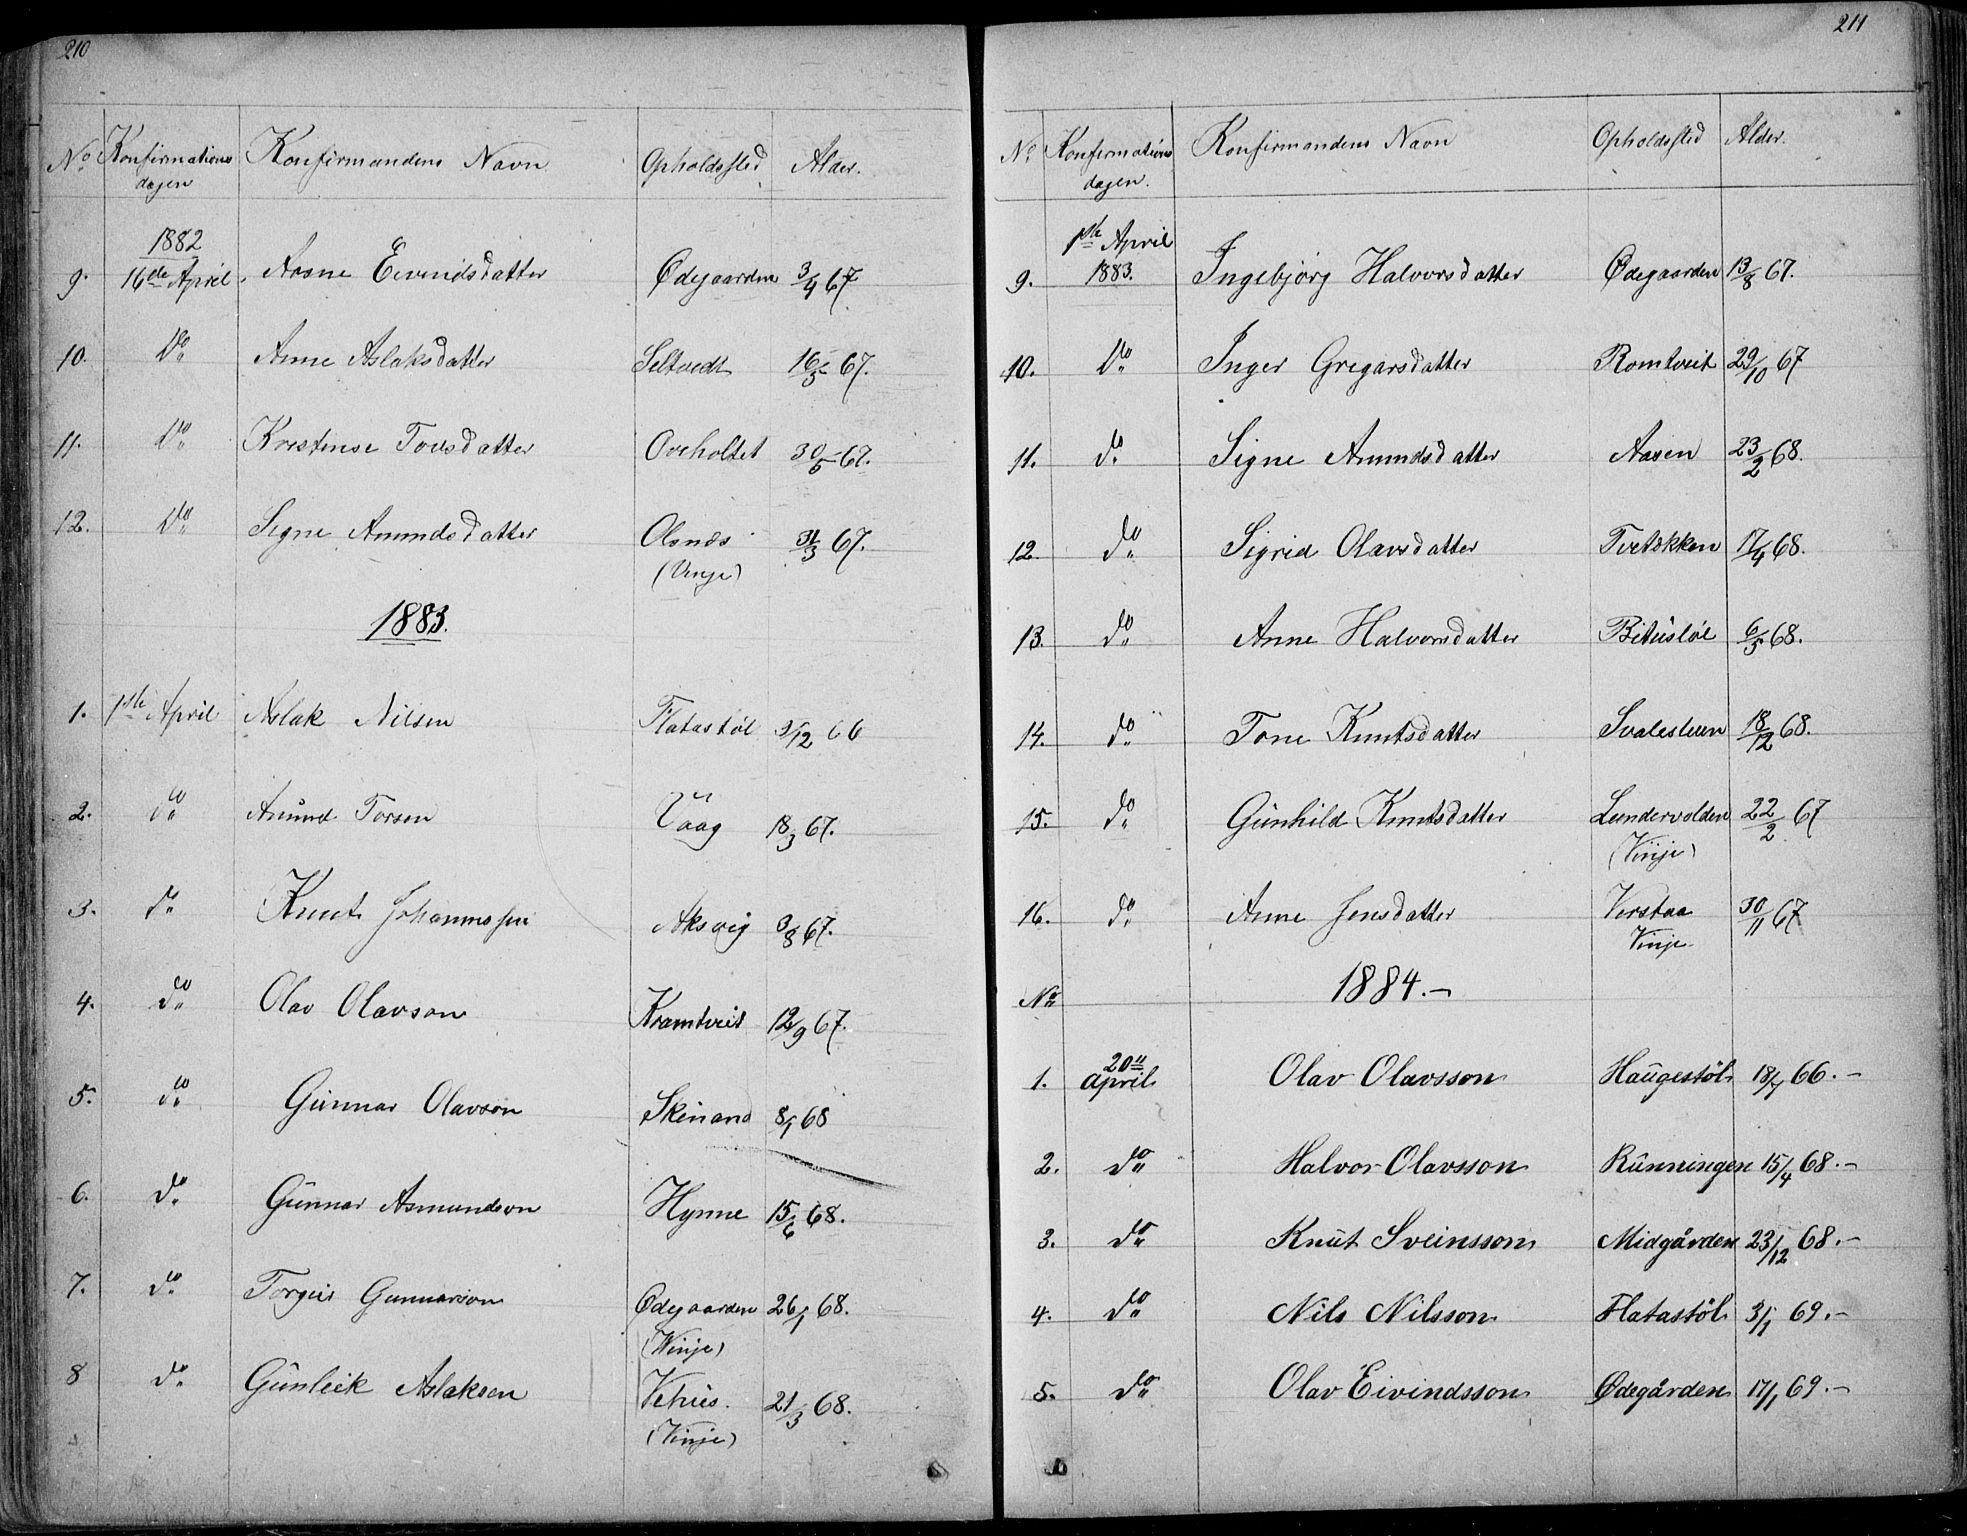 210
No Konfirmations Konfirmandens Navn Opholdssted Alder.
dagen
1882
9. 16de April Aasne Eivindsdatter Ødegaarden 3/4 67
10. Do Anne Aslaksdatter Seltvedt 16/5 67.
11. Do Kristense Tovsdatter Oveholtet 30/5 67.
12. Do Signe Amundsdatter Olsnes 31/3 67.
(Vinje)
1883.
1. 1ste April Aslak Nilsen Flatastøl 3/12 66
2. do Amund Torsen Vaag 18/3 67.
3. do Knut Johannessen Aksvig 3/8 67.
4. do Olav Olavson Kramtveit 12/9 67.
5. do Gunnar Olavson Skinand 8/1 68
6. do Gunnar Asmundson Hynne 15/6 68.
7. do Torgeir Gunnarson Ødegaarden 26/1 68.
(Vinje)
8 do Gunleik Aslaksen Vehus. 21/3 68.
(Vinje)
211
No Konfirmations Konfirmandens Navn Opholdssted Alder.
dagen.
1ste April
9. 1883. Ingebjørg Halvorsdatter Ødegaarden 13/8 67.
10. Do Inger Gregarsdatter Romtveit 29/10 67
11. do Signe Amundsdatter Aasen 23/2 68.
12. do Sigrid Olavsdatter Tveitekken 17/4 68.
13. do Anne Halvorsdatter Bitustøl 6/5 68.
14. do Tone Knutsdatter Svalesteen 18/12 68.
15. do Gunhild Knutsdatter Lundervolden 22/2 67
(Vinje)
16. do Anne Jensdatter Verstaa 30/11 67
Vinje
No 1884.-
20"
1. April Olav Olavsson Haugestøl 18/7 66.-
2. do Halvor Olavsson Runningen 15/4 68.-
3. do Knut Sveinsson Midgården 23/12 68.-
4. do Nils Nilsson Flatastøl 3/1 69.-
5. do Olav Eivindsson Ødegården 17/1 69.-